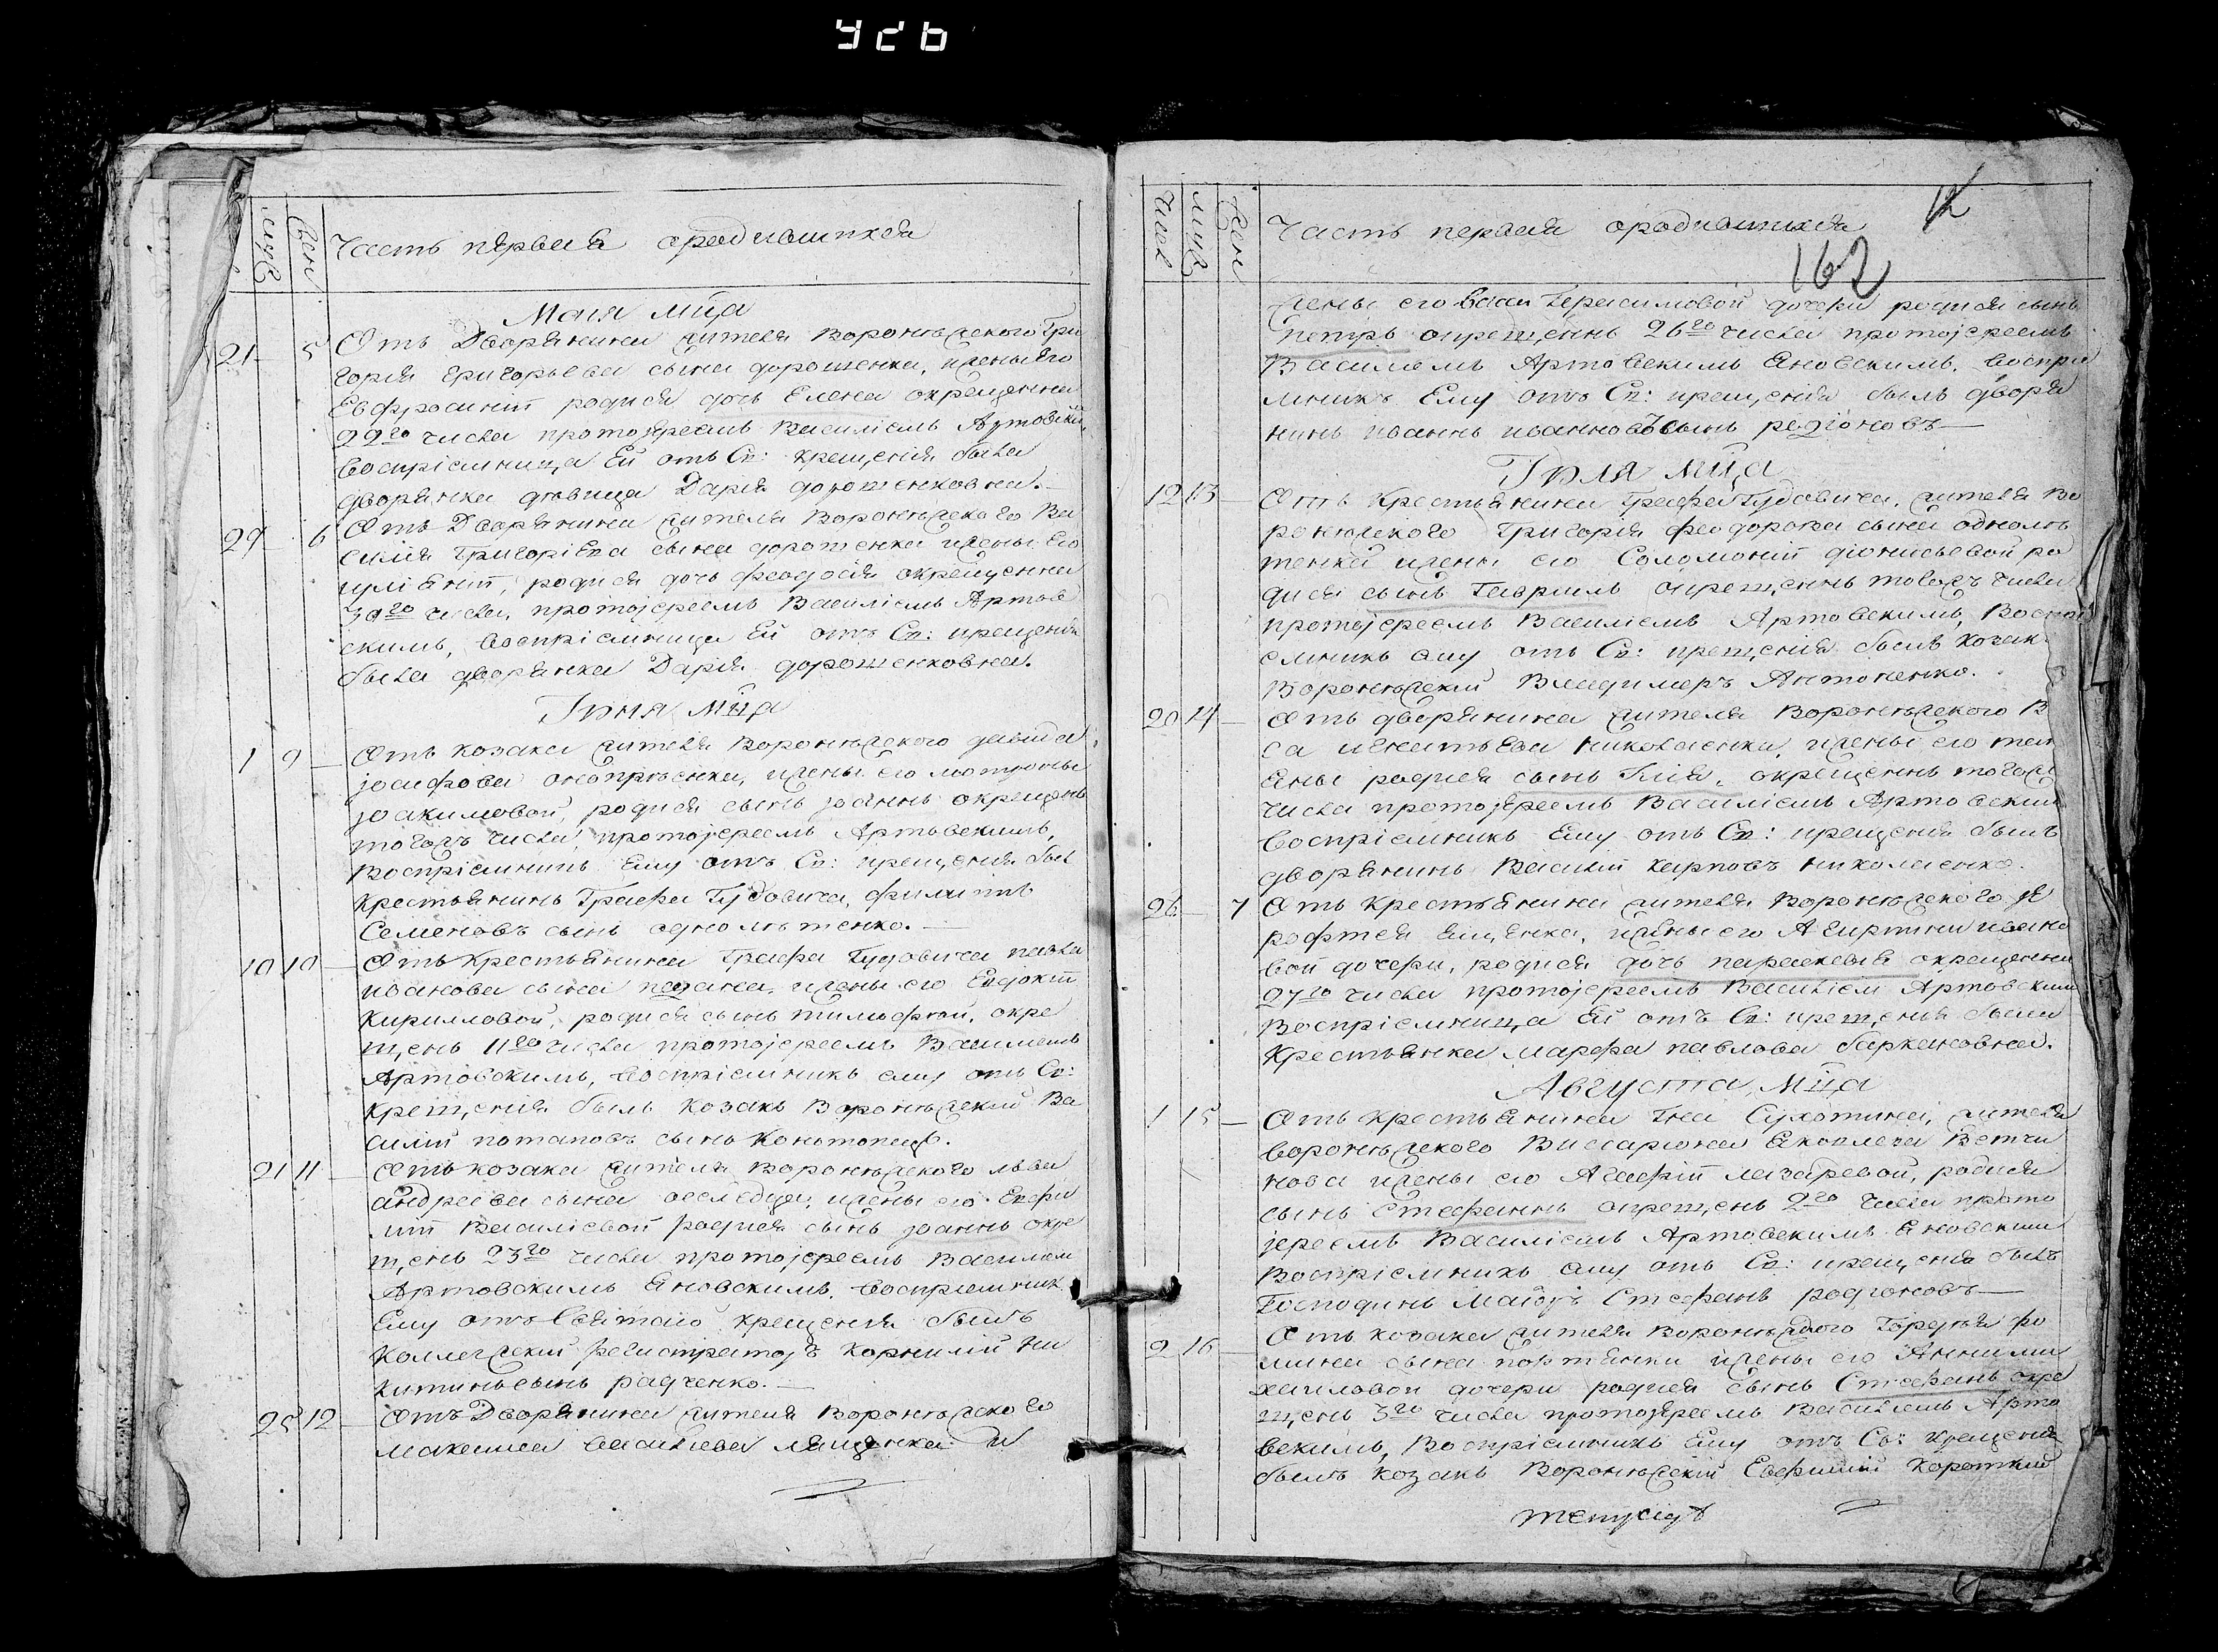 426
муж
жен
Часть первая ородившихся
Маия мца
21 5 Отъ Дворянина жителя Воронѣжского Гри
горія григорьева сына дорошенка, ижены его
Евфросиніи родися дочь Елена окрещенна
22го числа протоіереемъ Василіемъ Артовски,
воспріемница Ей отъ Св: крещенія была
дворянка дѣвица Дарія дорошенковна.
29 6 Отъ Дворянина жителя Воронѣжского Ва
силія Григоріева сына дорошенка ижены его
иуліяніи, родися дочь феодосія окрещенна
30го числа, протоіереемъ Василіемъ Артов
скимъ, воспріемница Ей отъ Св: крещенія
была дворянка Дарія дорошенковна.
Іюня мца
1 9 Отъ козака жителя Воронѣжского давида
іосифова оноприенка, ижены его мотроны
іоакимовой, родися сынъ іоаннъ окрещенъ
тогожъ числа, протоіереемъ Артовскимъ,
воспріемникъ Ему отъ Св: крещенія был
крестьянинъ Графа Гудовича, филипъ
Семеновъ сынъ одномѣтенко.
10 10 Отъ Крестьянина Графа Гудовича павла
иванова сына, ижены его Евдокіи
Кирилловой, родися сынъ тимофей, окре
щенъ 11го числа протоіереемъ Василиемъ
Артовскимъ, воспріемникъ ему отъ Св:
крещенія былъ козакъ Воронѣжскій Ва
силій потаповъ сынъ Конотопецъ.
21 11 Отъ козака жителя Воронѣжского льва
андреева сына, ижены его Евфи
міи Василіевой родися сынъ іоаннъ окре
щенъ 23го числа протоіереемъ Василием
Артовскимъ Яновскимъ, воспріемник
Ему отъ Святаго крещенія былъ
Коллежскій регистраторъ Корнилій Ни
китинъ сынъ радченко.
25 12 Отъ Дворянина жителя Воронѣжского
Максима васильева лященка и
числ
муж
жен
Часть первая ородившихся
12
162
жены его Герасимовой дочери родися сынъ
петръ окрещеннъ 26го числа протоіереемъ
Василіемъ Артовскимъ Яновскимъ, воспріе
мникъ Ему отъ Св: крещенія былъ дворя
нинъ иваннъ иванновъ сынъ родіоновъ
Іюля мца
12 13 Отъ Крестьянина Графа Гудовича, жителя Во
ронѣжского Григорія феодорова сына одномѣ
тенка ижены его Соломоніи діонисьевой ро
дися сынъ Гавриилъ окрещеннъ тогожъ числа
протоіереемъ Василіемъ Артовскимъ, Воспрі
емникъ ему отъ Св: крещенія былъ козак
Воронѣжскій Владимеръ Антоненко.
20 14 Отъ дворянина жителя Воронѣжского В
са игнатьева николаенка, ижены его тат
яны родися сынъ Ілія, окрещеннъ тогож
числа протоіереемъ Василіемъ Артовским
воспріемникъ Ему отъ Св: крещенія былъ
дворянинъ Василій карповъ николаенко.
26 7 Отъ Крестьянина жителя Воронѣжского Я
рофтея ященка, ижены его Агирпини ивано
вой дочери, родися дочь параскевія окрещенна
27го числа протоіереемъ Василіем Артовским
Воспріемница Ей отъ Св: крещенія была
Крестьянка Марфа павлова баркановна.
Августа мца
1 15 Отъ крестьянина Гна Сухотина, жителя
воронѣжского Висаріона яковлева Ветчи
нова ижены его Агафіи лазаревой, родися
сынъ Стефаннъ окрещенъ 2го числа прото
іереемъ Василіемъ Артовскимъ Яновским
Воспріемникъ ему отъ Св: крещенія былъ
Господинъ Маіоръ Стефанъ родіоновъ
2 16 Отъ козака жителя Воронѣжского Гордѣя фо
мина сына портянки ижены его Анны ми
хаиловой дочери родися сынъ Стефанъ окре
щенъ 3го числа протоіереемъ Василіемъ Арто
вскимъ, Воспріемникъ Ему отъ Св: крещенія
былъ козакъ Воронѣжскій Евфимій Короткій